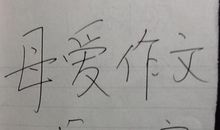 母爱作文